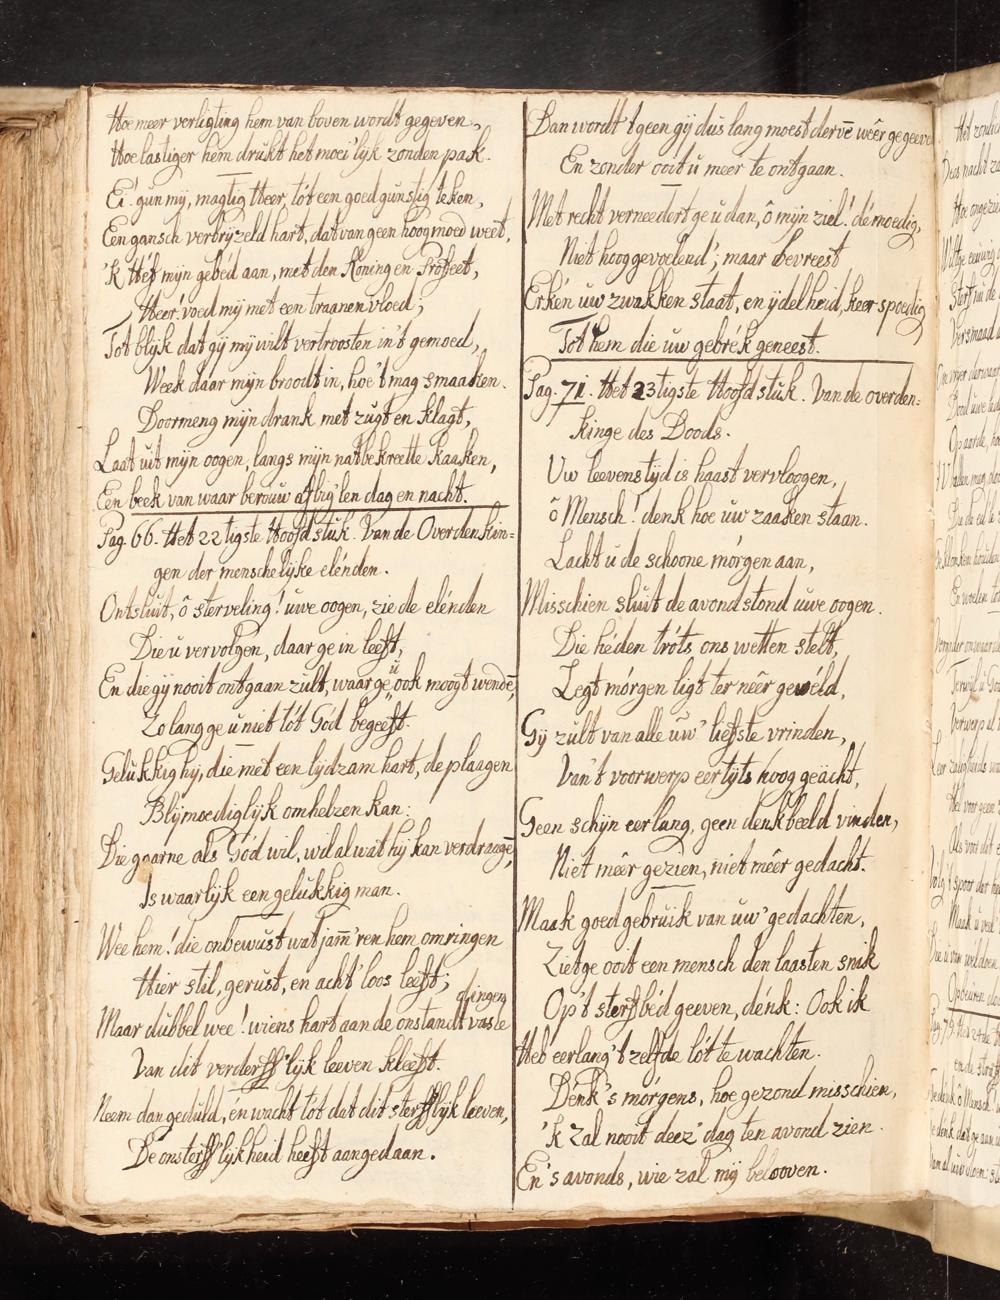 Hoe meer verligting hem van boven wordt gegeven,
Hoe lastiger hem drukt het moei'lijk zonden pak.
Ei! gun my, magtig Heer, tót een goed gunstig teken,
Een gansch verbryzeld hart, dat van geen hoogmoed weet,
'k Héf mijn gebéd aan, met den Koning en Profeet,
Heer! voed mÿ met een traanen vloed;
Tot blyk dat gÿ mÿ wilt vertroosten in't gemoed,
Week daar mijn broodt in, hoe 't mag smaaken.
Doormeng mijn drank met zugt en klagt,
Laat uit mijn oogen, langs mijn nat bekreette kaaken,
Een beek van waar berouw afbig'len dag en nacht.
Pag. 66. Het 22tigste Hoofdstuk. Van de Overdenkin=
gen der menschelijke elénden.
Ontsluit, ô sterveling! uwe oogen, zie de elénden
Die u vervolgen, daar ge in leeft,
En die gÿ nooit ontgaan zult, waar ge u ook moogt wendē,
Zo lang ge u niet tót God begeeft.
Gelukkig hij, die met een lydzam hart, de plaagen
Blijmoediglijk omhelzen kan:
Die gaarne als God wil, wil al wat hij kan verdraagē,
Is waarlijk een gelukkig man.
Wee hem! die onbewust wat jam̄'ren hem omringen
Hier stil, gerust, en acht'loos leeft;
Maar dubbel wee! wiens hart aan de onstandtvaste dingen
Van dit verderff'lijk leeven kleeft.
Neem dan geduld, en wacht tót dat dit sterfflijk leeven,
De onsterff'lijkheid heeft aangedaan.
Dan wordt 't geen gij dus lang moest dervē wêer gegeeven
En zonder ooit u meer te ontgaan.
Met recht verneedert ge u dan, ô mijn ziel! démoedig,
Niet hoog gevoelend'; maar bevreest
Erkén uw zwakken staat, en ÿdelheid, keer spoedig
Tot hem die uw gebrék geneest.
Pag. 71. Het 23tigste Hoofdstuk. Van de overden=
kinge des Doods.
Uw leevenstijd is haast vervloogen,
ô Mensch! denk hoe uw zaaken staan.
Lacht u de schoone mórgen aan,
Misschien sluit de avondstond uwe oogen.
Die héden tróts ons wetten stelt,
Legt mórgen ligt ter nêer gewéld,
Gÿ zult van alle uw' liefste vrinden,
Van't voorwerp eertijts hoog geächt,
Geen schijn eerlang, geen denkbeeld vinden,
Niet mêer gezien, niet mêer gedacht.
Maak goed gebruik van uw' gedachten,
Zietge ooit een mensch den laasten snik
Op't sterfbéd geeven, dénk: Ook ik
Heb eerlang 't zelfde lót te wachten.
Dénk 's mórgens, hoe gezond misschien,
'k Zal nooit deez' dag ten avond zien.
En 's avonds, wie zal mij belooven.